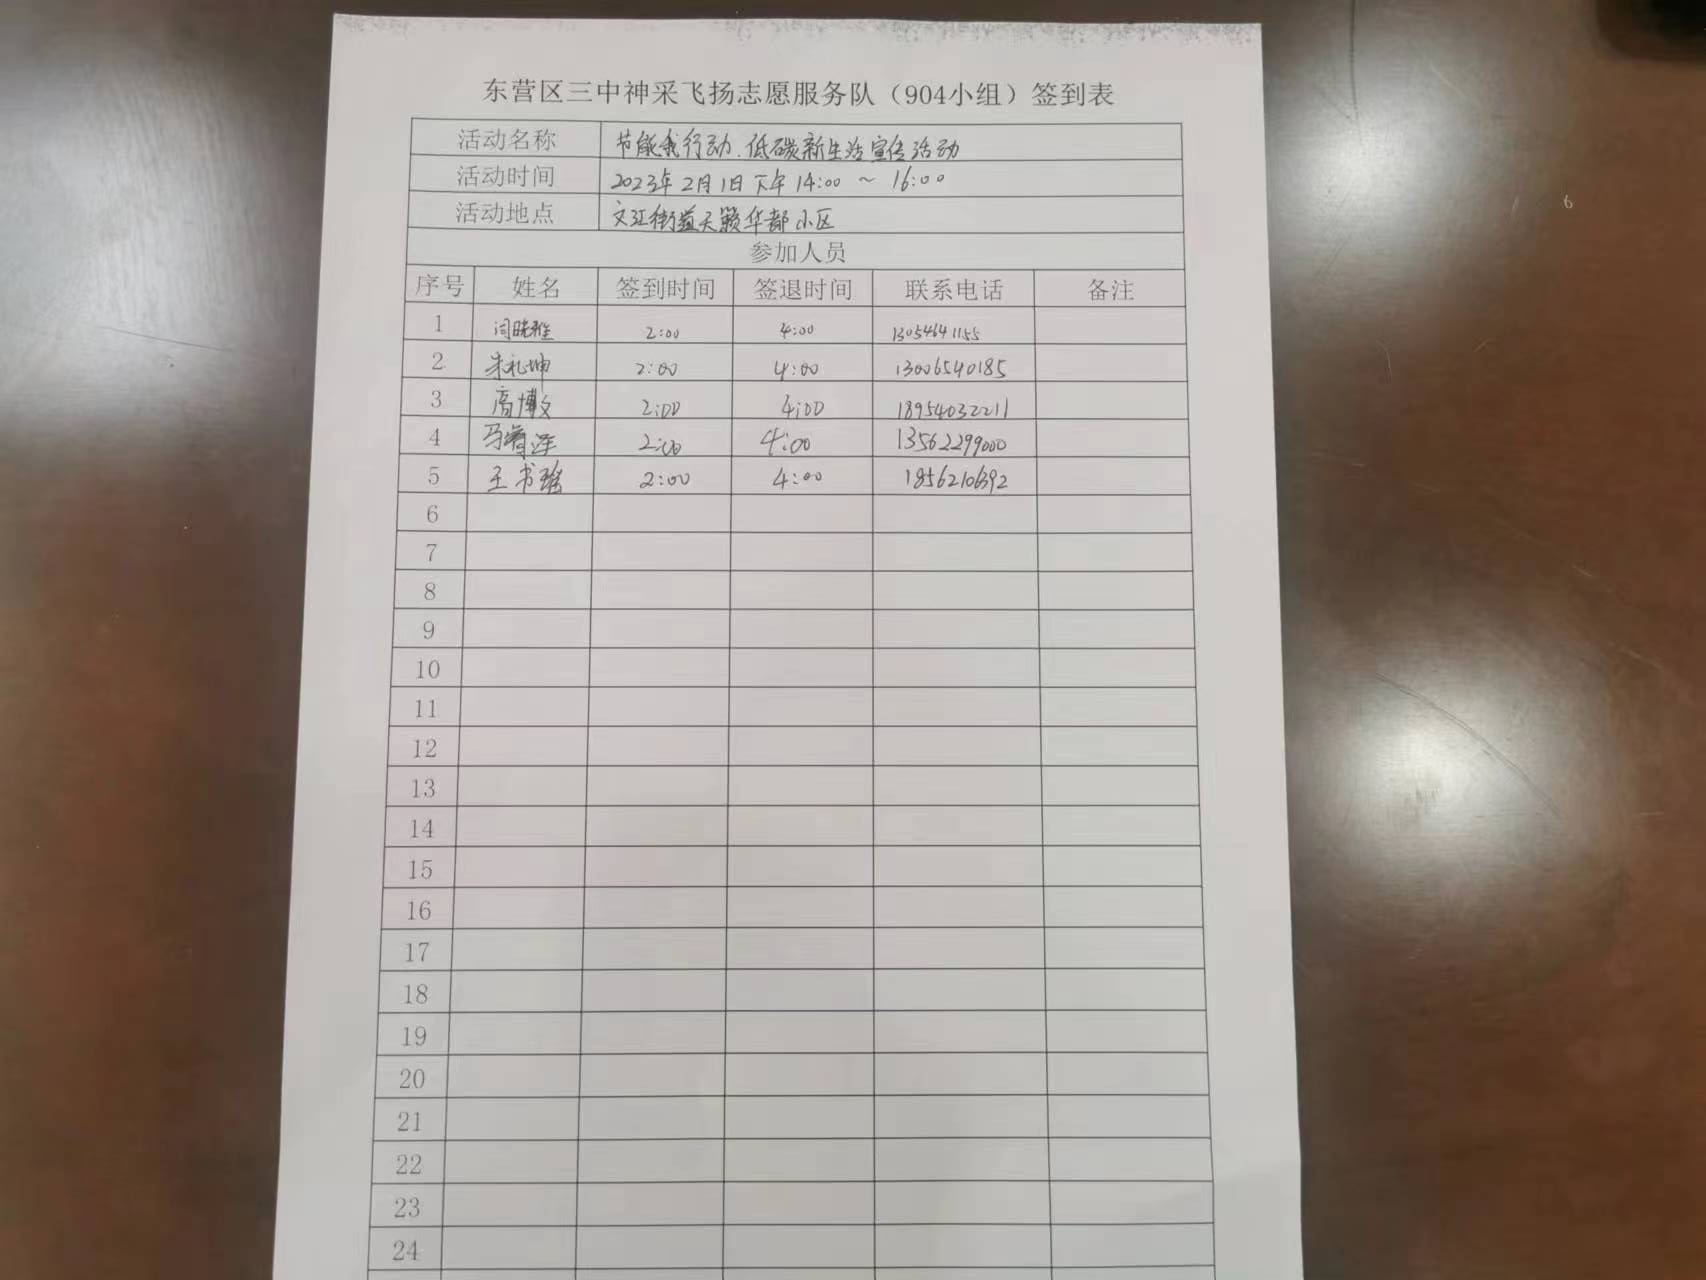 东营区三中神采飞扬志愿服务队（904小组）签到表
活动名称 节能我行动、低碳新生活宣传活动
活动时间 2023年2月1日下午14:00～16:00
活动地点 文汇街道天籁华都小区
参加人员
序号 姓名 签到时间 签退时间 联系电话 备注
1 闫晓雅 2:00 4:00 13054641155
2 朱礼坤 2:00 4:00 13006540185
3 高博文 2:00 4:00 18954032211
4 2:00 4:00 13562299000
5 王书瑶 2:00 4:00
6
7
8
9
10
11
12
13
14
15
16
17
18
19
20
21
22
23
24